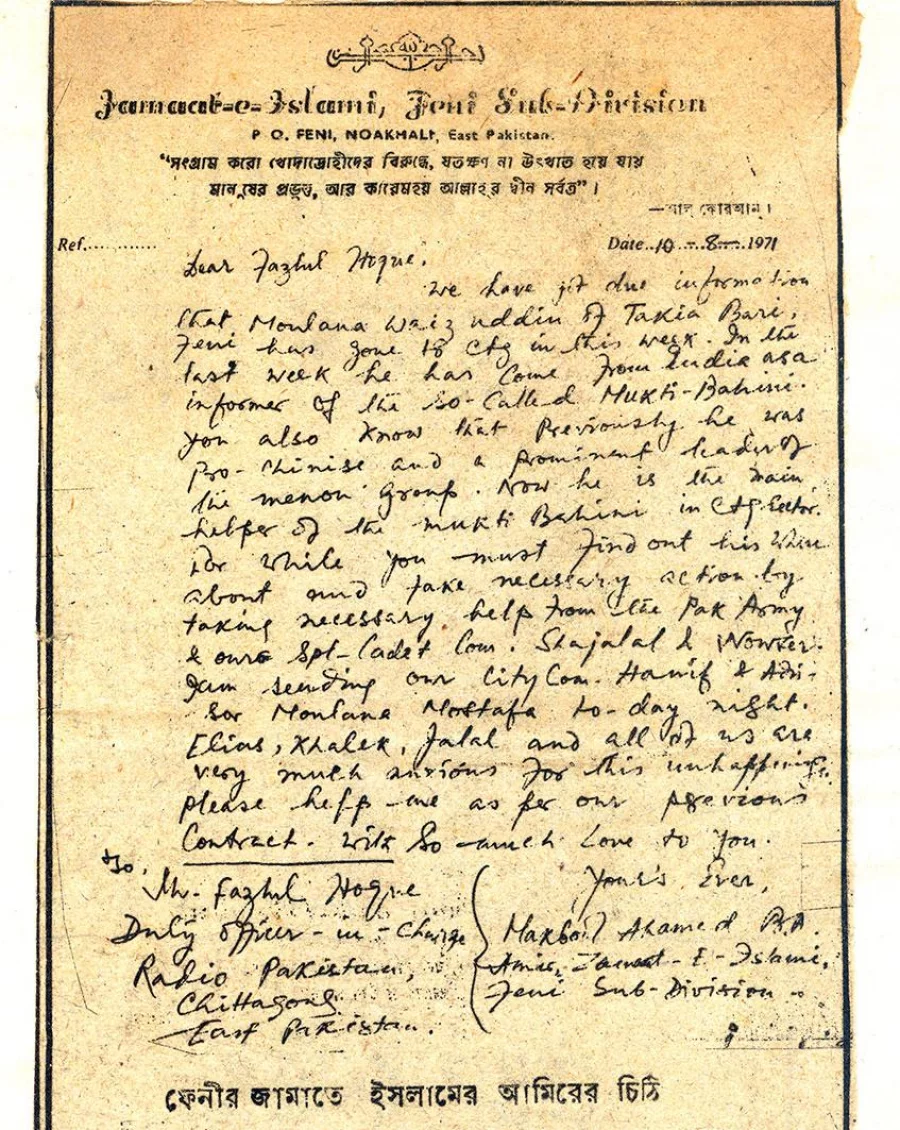 Jamaat-e-Islami, Feni Sub-Division
P. O. FENI, NOAKHALI, East Pakistan.
“সংগ্রাম করো খোদাদ্রোহীদের বিরুদ্ধে, যতক্ষণ না উৎখাত হয়ে যায়
মানুষের প্রভুত্ব, আর কায়েম হয় আল্লাহ্‌র দ্বীন সর্বত্র”।
—আল্ কোরআন্।
Ref............. Date..10 -..8-...1971
Dear Fazlul Hoque.
We have got due information
that Moulana Waiz uddin of Takia Bari,
Feni has gone to Ctg in this week. In the
last week he has come from India as a
informer of the So-Called Mukti-Bahini.
you also know that Previously he was
Pro-Chinise and a prominent leader of
the menon Group. Now he is the main
helper of the mukti Bahini in Ctg Sector.
for while you must find out his where
about and take necessary action by
taking necessary help from the Pak Army
& ours Spl-Cadet Com. Shajalal &
I am sending our City Com. Hanif & Advi-
sor Moulana Mostafa to-day night.
Elias, Khalek, Jalal and all of us are
very much anxious for this unhappening.
please help me as per our previous
Contract. with So much Love to you.
To, Yours Ever,
Mr. Fazlul Hoque
Duty officer-in-Charge Makbool Ahamed B.A.
Radio Pakistan, Amir, Jamat-E-Islami,
Chittagong Feni Sub-Division
East Pakistan.
ফেনীর জামাতে ইসলামের আমিরের চিঠি